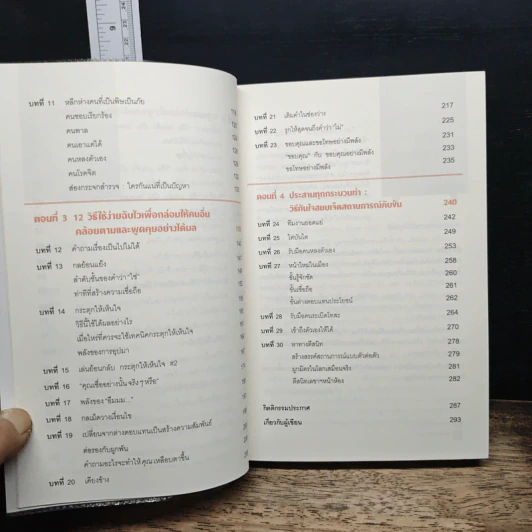 6
บทที่ 11 หลีกห่างคนที่เป็นพิษเป็นภัย
คนชอบเรียกร้อง
คนพาล
คนเอาแต่ได้
คนหลงตัวเอง
คนโรคจิต
ส่องกระจกสำรวจ : ใครกันแน่ที่เป็นปัญหา
ตอนที่ 3 12 วิธีใช้ง่ายฉับไวเพื่อกล่อมให้คนอื่น
คล้อยตามและพูดคุยอย่างได้ผล
บทที่ 12 คำถามเรื่องเป็นไปไม่ได้
บทที่ 13 กลย้อนแย้ง
ลำดับชั้นของคำว่า "ใช่"
ท่าทีที่สร้างความเชื่อถือ
บทที่ 14 กระตุกให้เห็นใจ
วิธีนี้ใช้ได้ผลอย่างไร
เมื่อไหร่ที่ควรจะใช้เทคนิคกระตุกให้เห็นใจ
พลังของการอุปมา
บทที่ 15 เล่นย้อนกลับ กระตุกให้เห็นใจ #2
บทที่ 16 "คุณเชื่ออย่างนั้นจริงๆ หรือ"
บทที่ 17 พลังของ "อืมมม..."
บทที่ 18 กลเม็ดวางเงื่อนไข
บทที่ 19 เปลี่ยนจากต่างตอบแทนเป็นสร้างความสัมพันธ์
ต่อรองกับผูกพัน
คำถามอะไรจะทำให้คุณเหลือบตาขึ้น
บทที่ 20 เคียงข้าง
บทที่ 21 เติมคำในช่องว่าง 217
บทที่ 22 รุกให้สุดจนถึงคำว่า "ไม่" 225
บทที่ 23 ขอบคุณและขอโทษอย่างมีพลัง 231
"ขอบคุณ" กับ ขอบคุณอย่างมีพลัง 233
ขอโทษอย่างมีพลัง 235
ตอนที่ 4 ประสานทุกกระบวนท่า :
วิธีทันใจสยบเจ็ดสถานการณ์คับขัน 240
บทที่ 24 ทีมงานยอดแย่ 242
บทที่ 25 ไต่บันได 249
บทที่ 26 รับมือคนหลงตัวเอง 253
บทที่ 27 หน้าใหม่ในเมือง 258
ขั้นรู้จักชัด 260
ขั้นเชื่อถือ 261
ขั้นต่างตอบแทนประโยชน์ 262
บทที่ 28 รับมือคนระเบิดโทสะ 264
บทที่ 29 เข้าถึงตัวเองให้ได้ 270
บทที่ 30 หาทางตีสนิท 278
สร้างสรรค์สถานการณ์แบบตัวต่อตัว 279
ผูกมิตรในโลกเสมือนจริง 281
ตีสนิทเลขาฯหน้าห้อง 282
กิตติกรรมประกาศ 287
เกี่ยวกับผู้เขียน 293